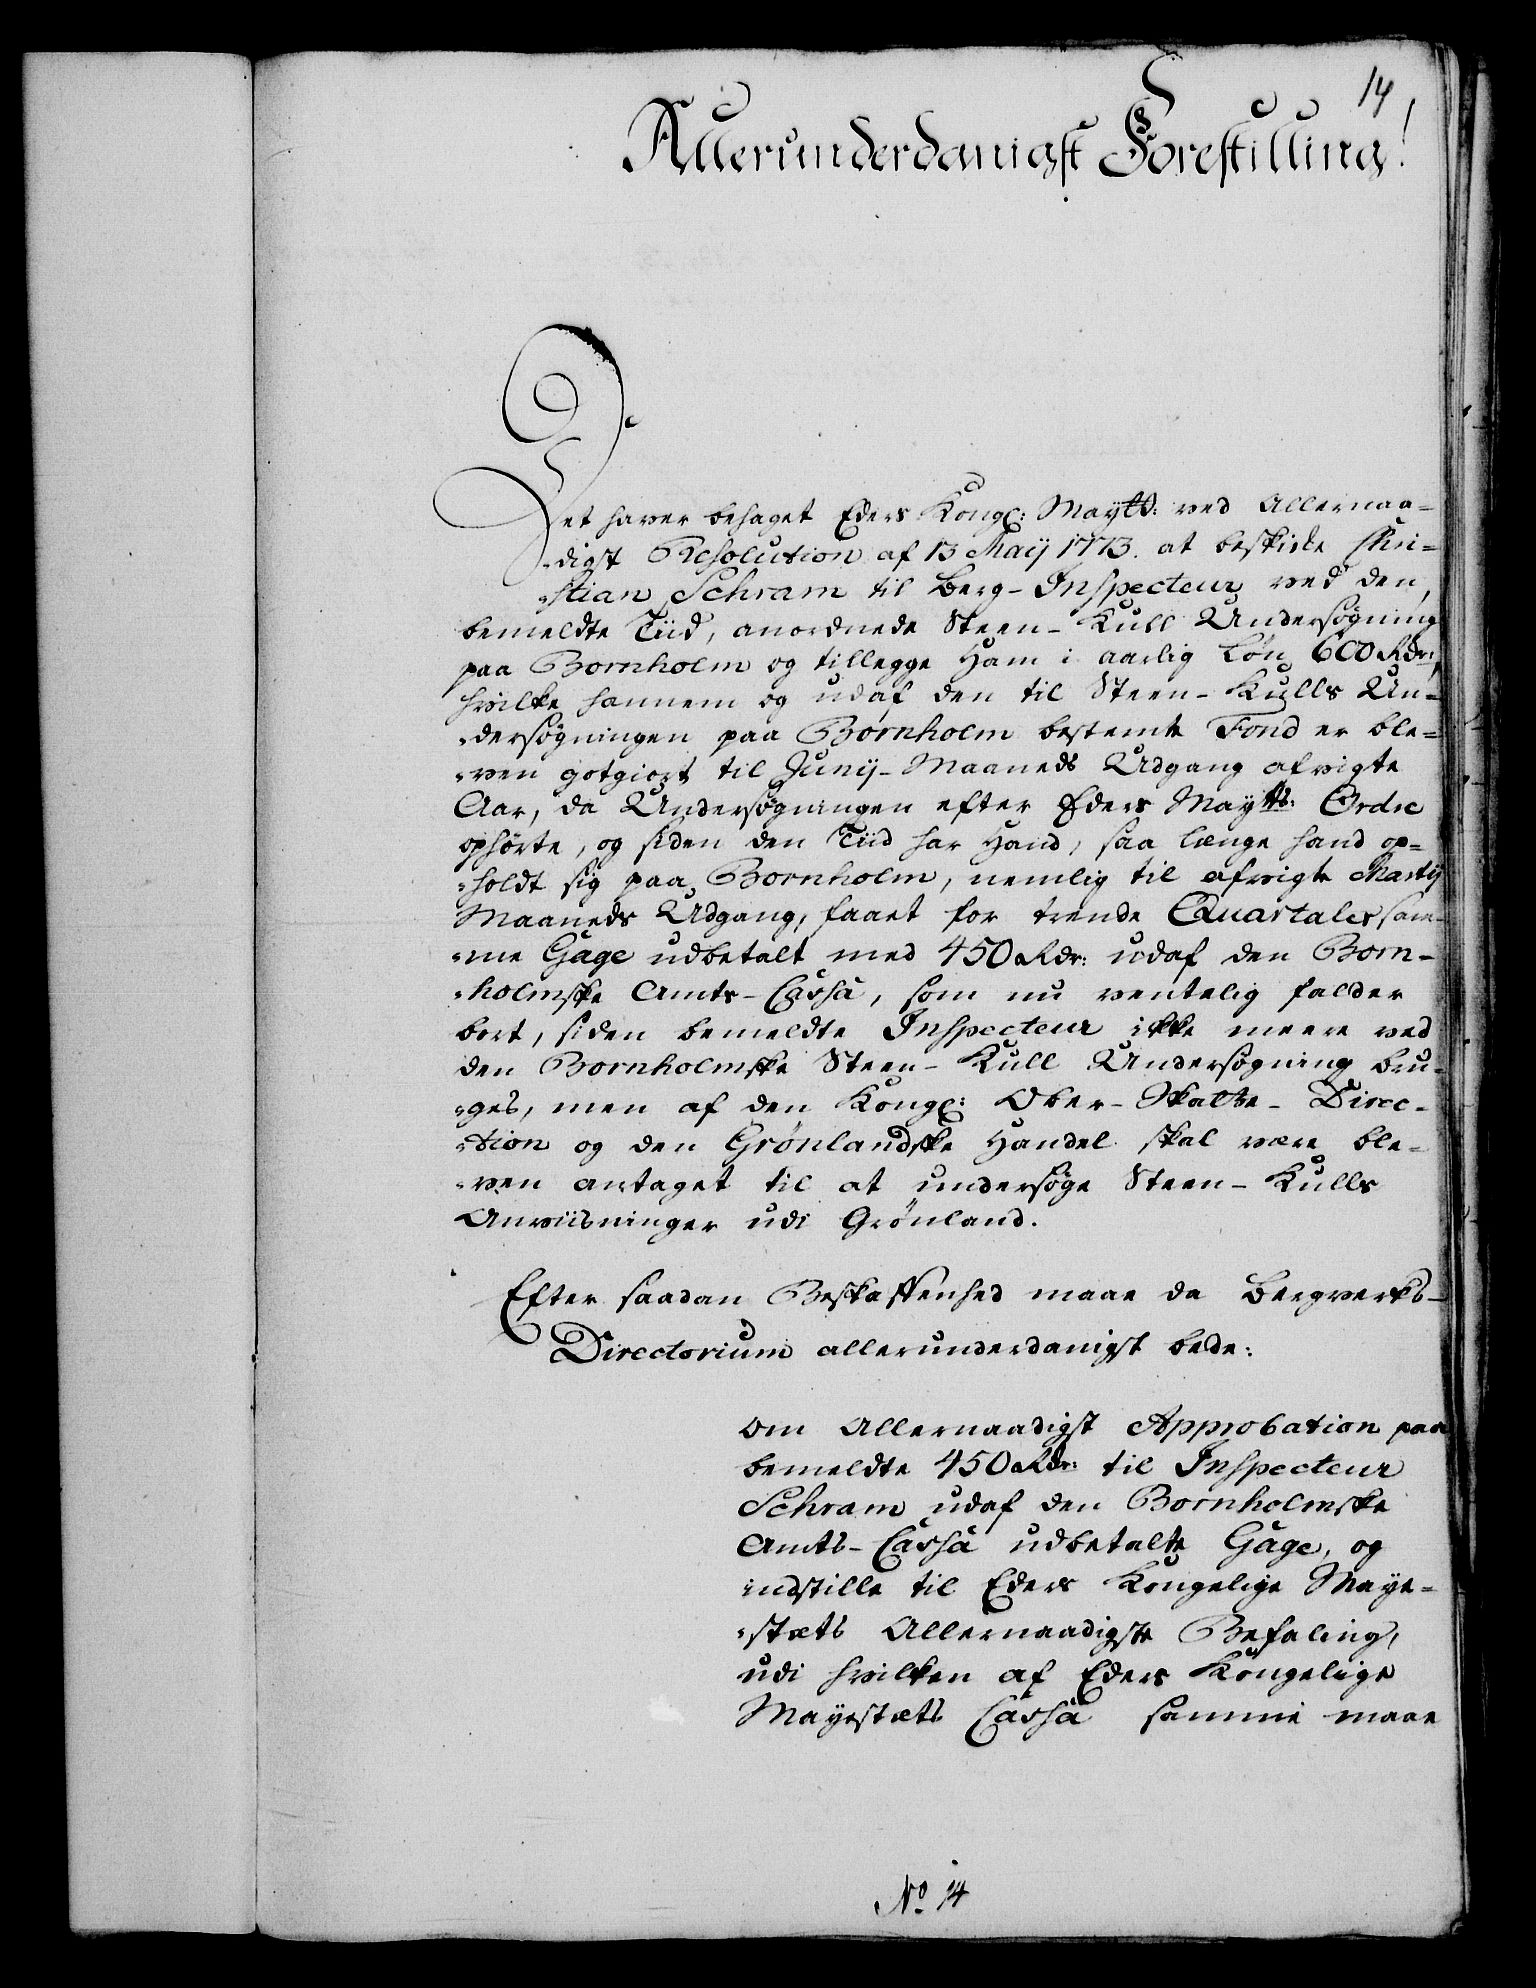 14
Allerunderdanigst Forestilling!
Det haver behaget Eders Kongl: Maytt: ved Allernaa=
=digst Resolution af 13 Maij 1773. at beskikke Chri=
=stian Schram til Berg-Inspecteur ved den,
bemeldte Tiid, anordnede Steen-Kull Undersøgning
paa Bornholm og tillegge Ham i aarlig Løn 600 Rdr:,
hvilke hannem og udaf den til Steen-Kulls Un=
=dersøgningen paa Bornholm bestemte Fond er ble=
=ven gotgiort til Junij-Maaneds Udgang afvigte
Aar, da Undersøgningen efter Eders Maytts: Ordre
ophørte, og siden den Tiid har Hand, saa længe hand op=
=holdt sig paa Bornholm, nemlig til afvigte Martij
Maaneds Udgang, faaet for trende Quartaler sam=
=me Gage udbetalt med 450 Rdr: udaf den Born=
=holmske Amts-Cassa, som nu ventelig falder
bort, siden bemeldte Inspecteur ikke meere ved
den Bornholmske Steen-Kull Undersøgning bru=
=ges, men af den Kongl: Ober-Skatte-Direc=
=tion og den Grønlandske Handel skal være ble=
=ven antaget til at undersøge Steen-Kulls
Anviisninger udi Grønland.
Efter saadan Beskaffenhed maae da Bergverks-
Directorium allerunderdanigst bede:
Om Allernaadigst Approbation paa
bemeldte 450 Rdr: til Inspecteur
Schram udaf den Bornholmske
Amts-Cassa udbetalte Gage, og
indstille til Eders Kongelige Maye=
=stæts Allernaadigste Befaling,
udi hvilken af Eders Kongelige
Mayestæts Cassa samme maae
No. 14